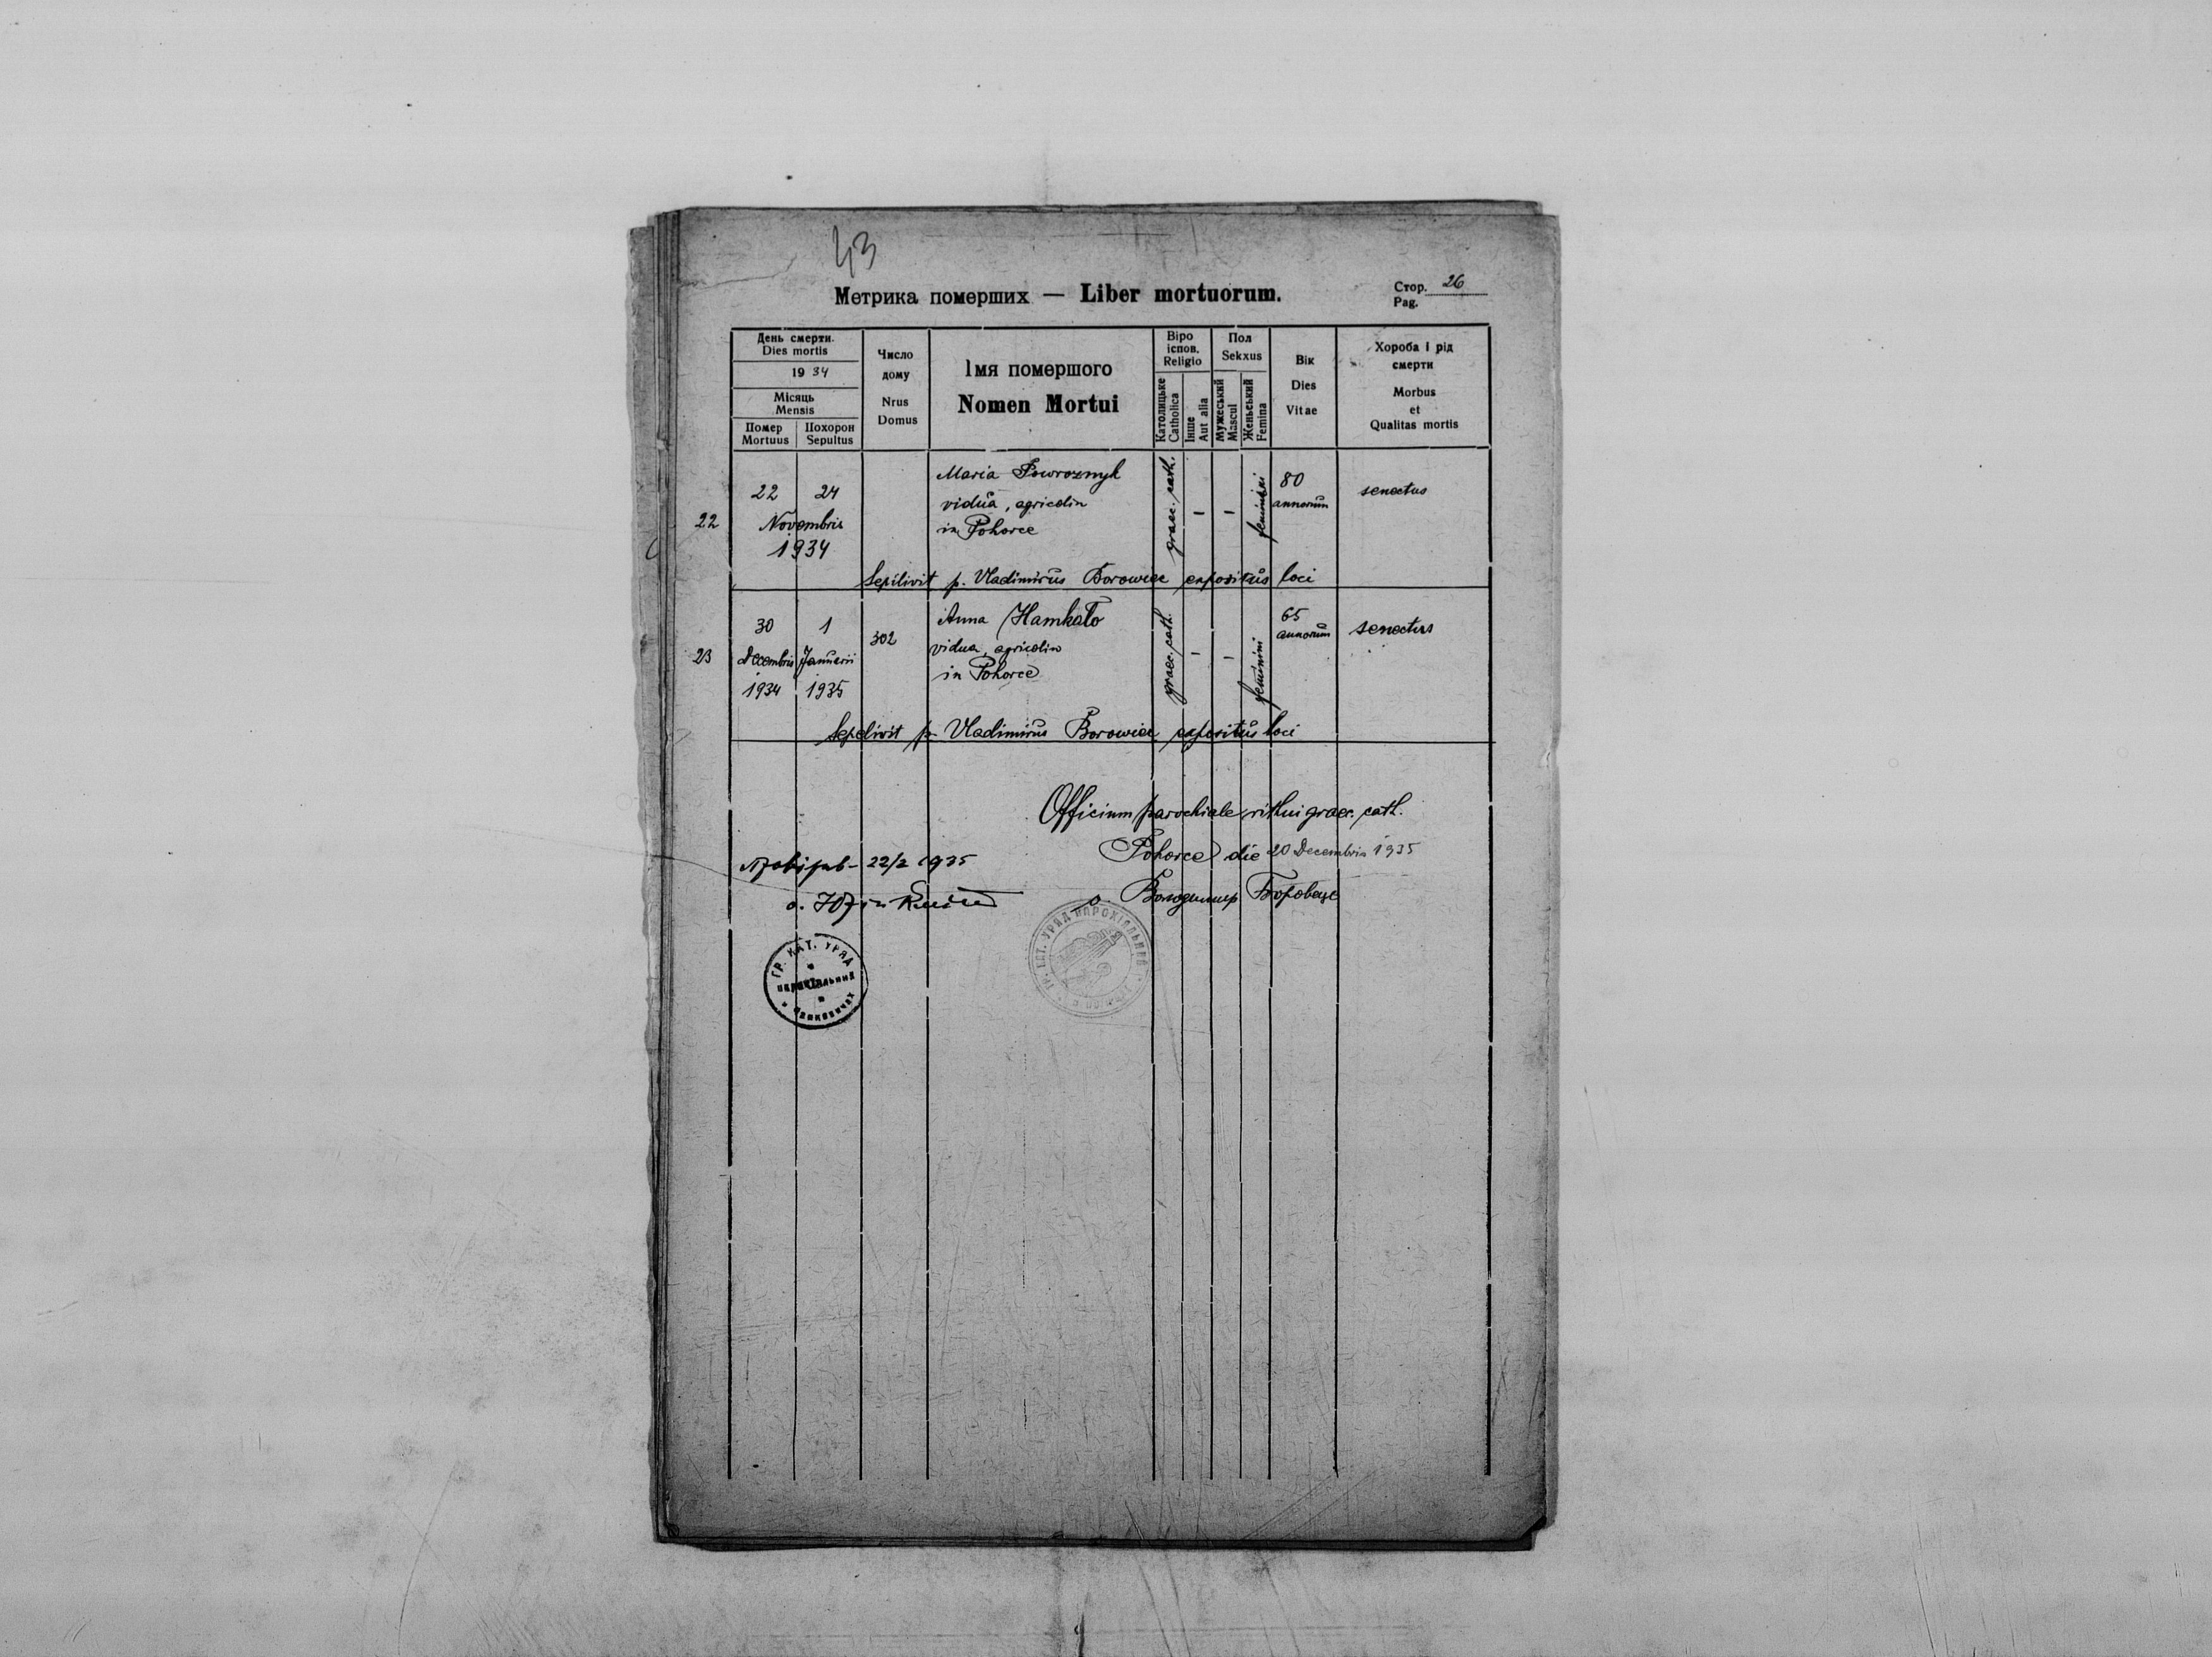 43
Метрика померших — Liber mortuorum.
Стор. 26
Pag.
День смерти.
Dies mortis
1934
Місяць
Mensis
Помер
Mortuus
Похорон
Sepultus
Число
дому
Nrus
Domus
Імя помершого
Nomen Mortui
Віро
іспов.
Religio
Католицьке
Catholica
Інше
Aut alia
Пол
Sekxus
Мужеський
Mascul
Женьський
Femina
Вік
Dies
Vitae
Хороба і рід
смерти
Morbus
et
Qualitas mortis
22
22 24
Novembris
1934
Maria Powroznyk
vidua, agricolin
in Pohorce
graec. cath.
-
-
feminini
80
annorum
senectus
Sepilivit p. Vladimirus Borowiec expositus loci
23
30 1
Decembris Januarii
1934 1935
302
Anna Hamkało
vidua, agricolin
in Pohorce
graec. cath.
-
-
feminini
65
annorum
senectus
Sepelivit p. Vladimirus Borowiec expositus loci
Officium parochiale rithui graec. cath.
Pohorce die 20 Decembris 1935
о. Володимир Боровець
22/2 1935
о.
ГР. КАТ. УРЯД
парохіяльний
ГР. КАТ. УРЯД ПАРОХІЯЛЬНИЙ